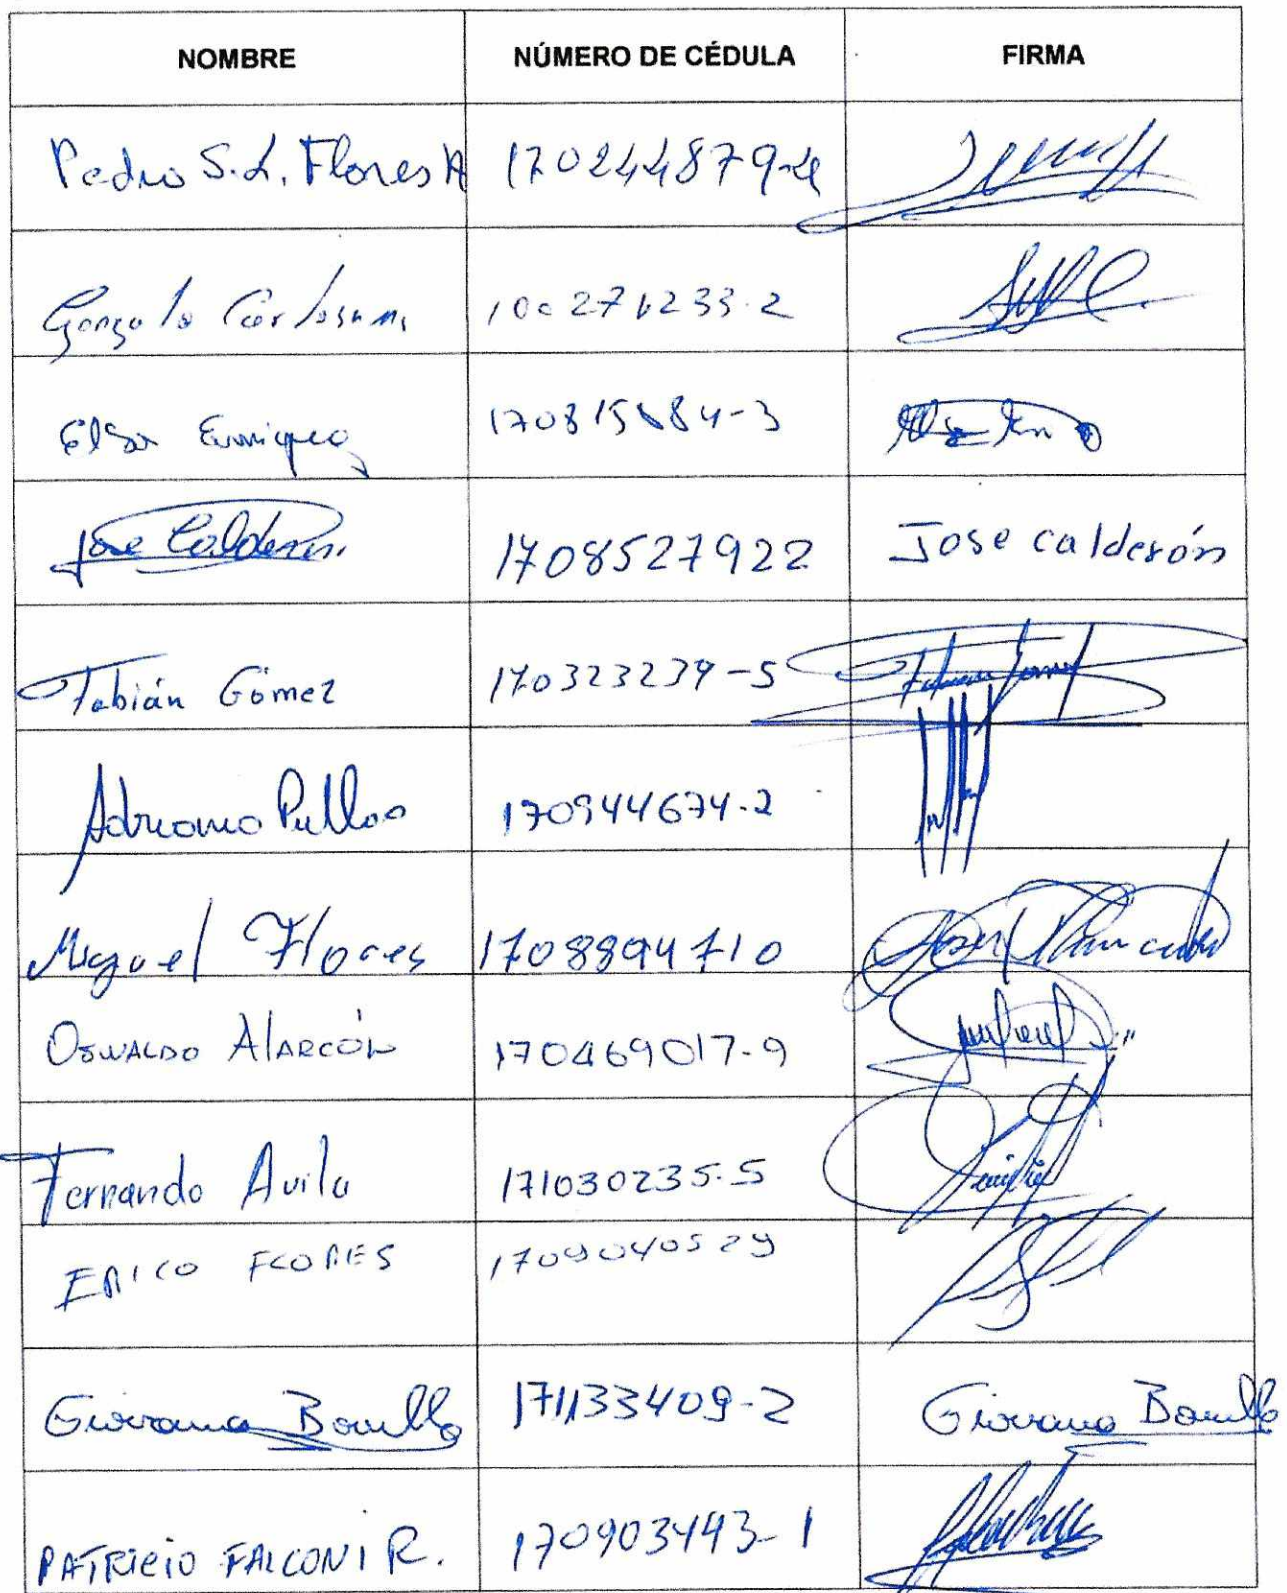 NOMBRE NÚMERO DE CÉDULA FIRMA
Pedro S.L. Flores A 170244879-4
Gonzalo 10027 233-2
Elsa Enriquez 170815184-3
Jose Calderón 1708527922 Jose calderón
Fabián Gómez 170323239-5
Adriano Pullas 170944674-2
Miguel Flores 1708894710
OSWALDO ALARCÓN 170469017-9
Fernando Avila 171030235-5
ERICO FLORES 1709040529
Giovana Bonilla 171133409-2 Giovana Bonilla
PATRICIO FALCONI R. 170903493-1